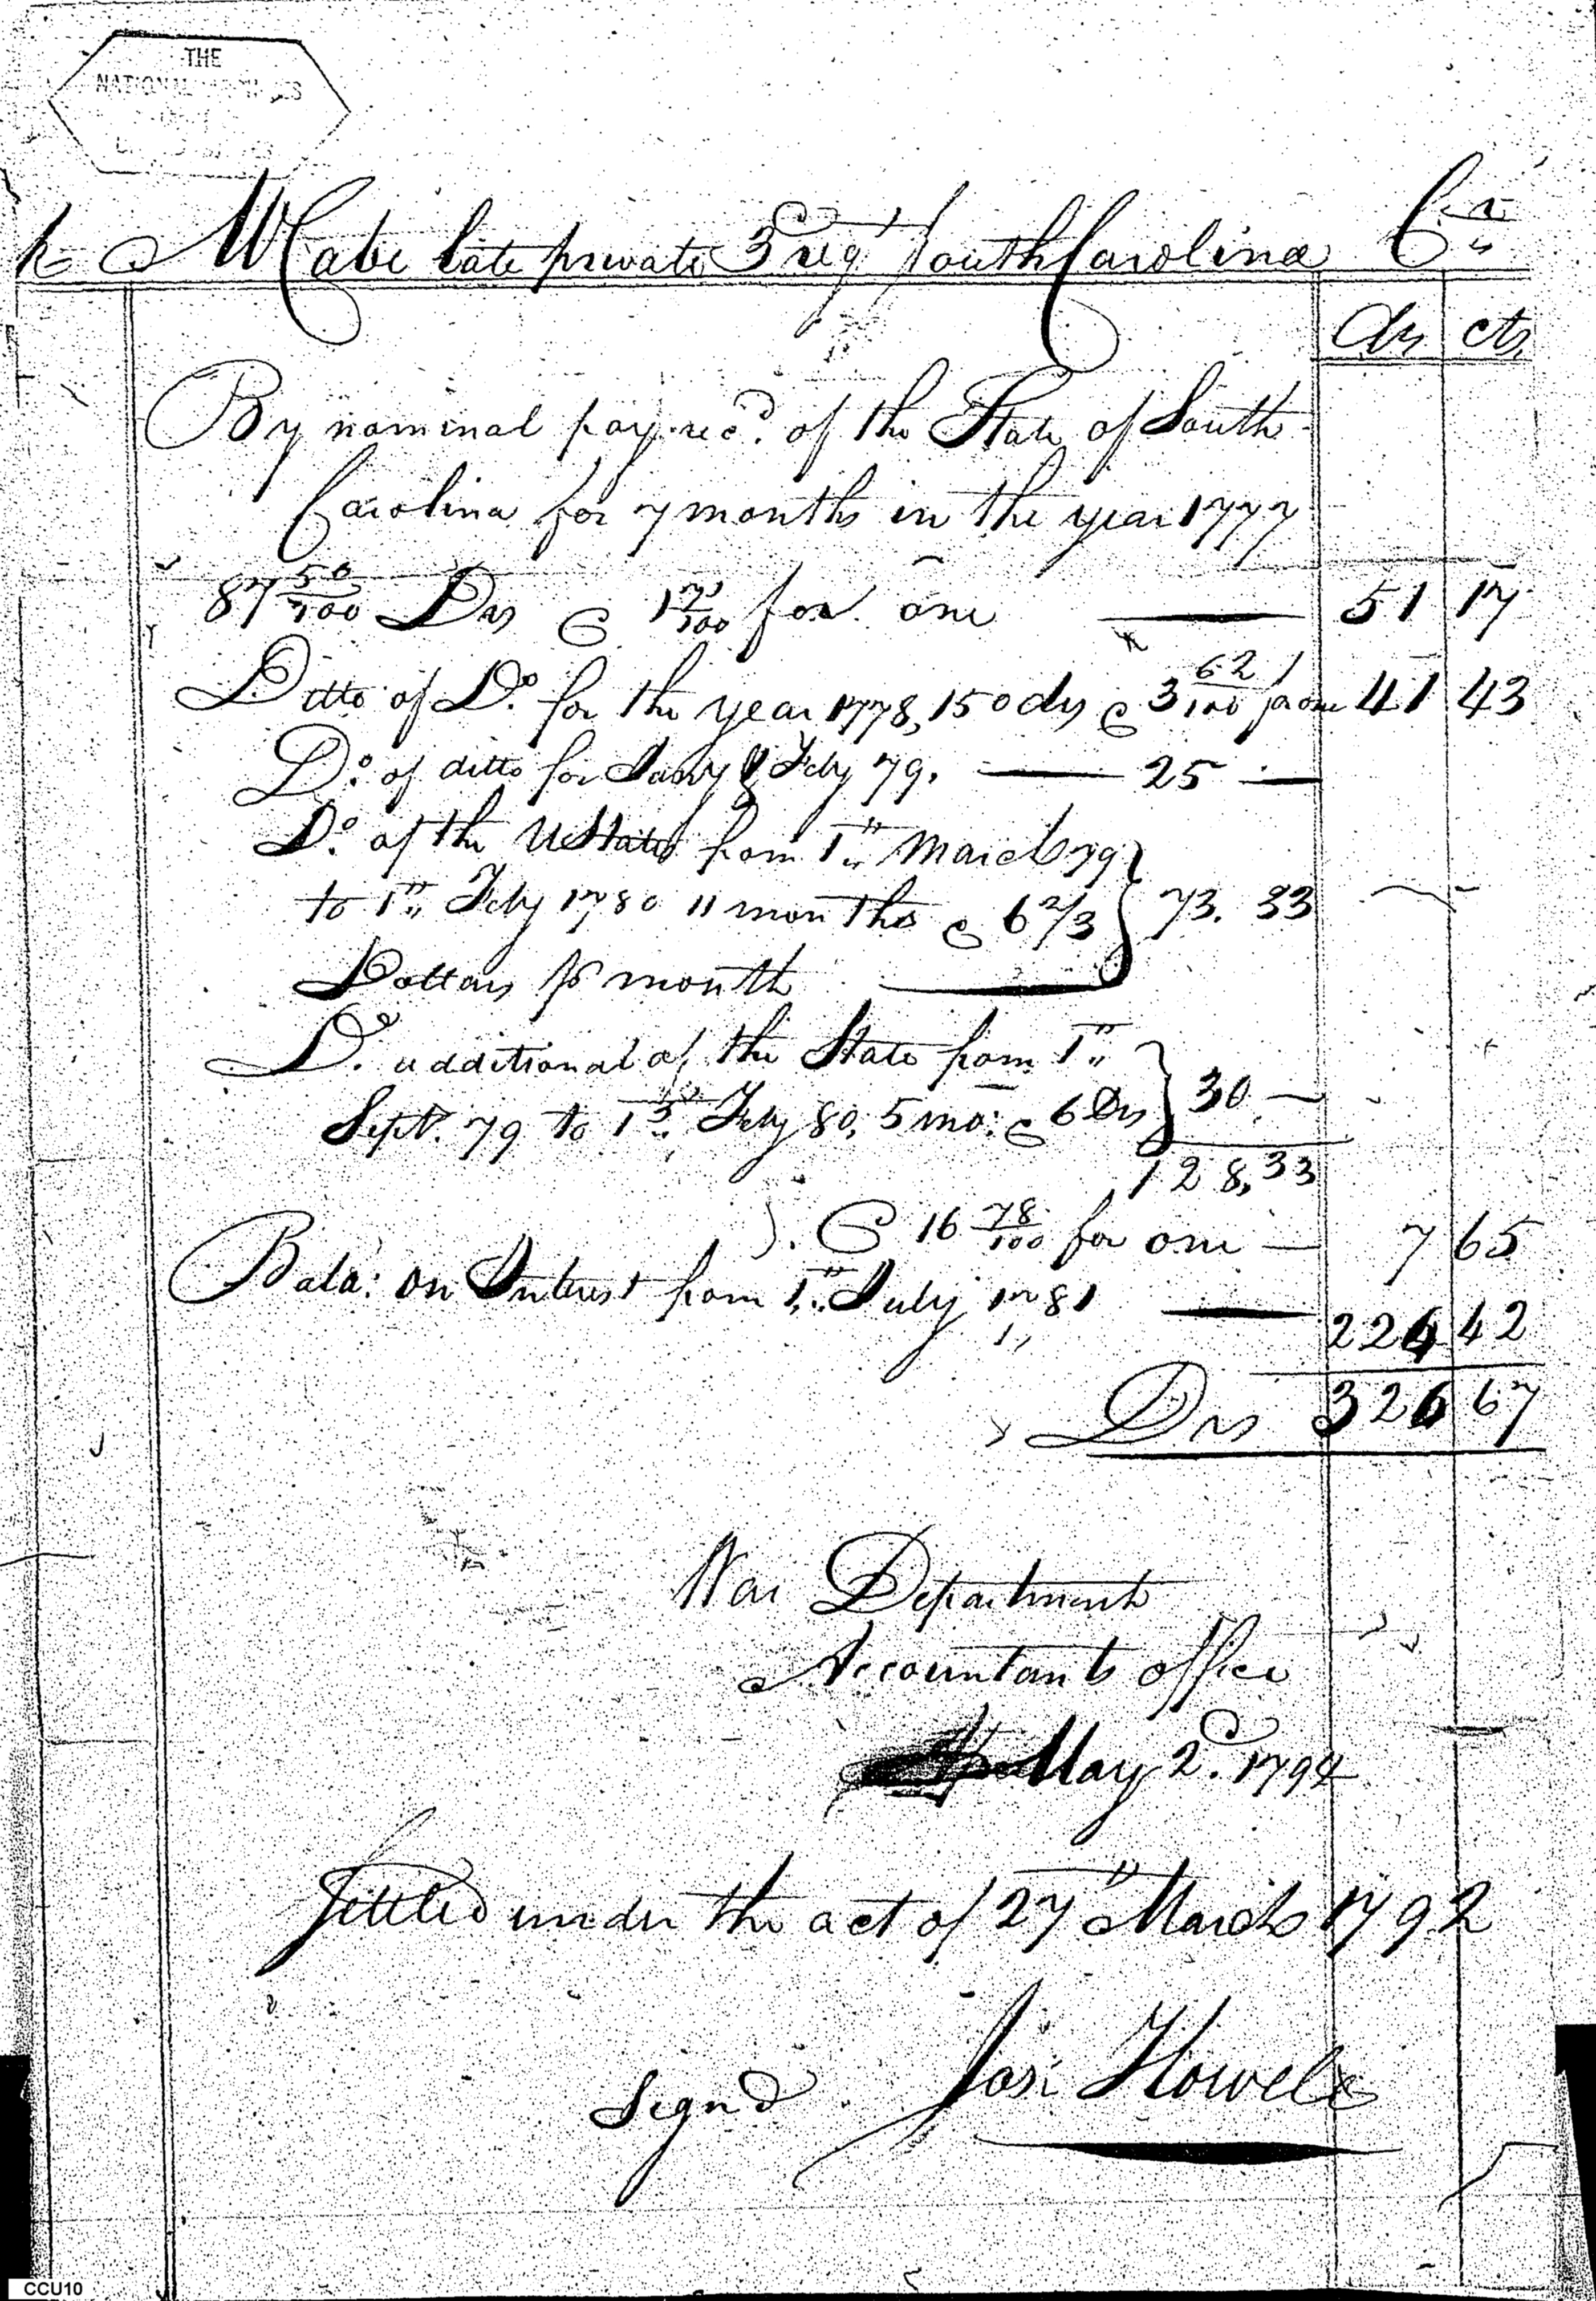 THE
NATIONAL ARCHIVES
McCabe late private 3d regt South Carolina Cr
drs cts
By nominal pay recd. of the State of South
Carolina for 7 months in the year 1777
87 50/100 Drs @ 1 71/100 for one — 51 17
Ditto of Do. for the year 1778, 150 drs @ 3 62/100 for one 41 43
Do. of ditto for Jany & Feby 79. — 25 —
Do. of the U States from 1st March 79
to 1st Feby 1780 11 months @ 6 2/3 } 73. 33
Dollars pr month
Do. additional of the State from 1st
Sept. 79 to 1st Feby 80, 5 mo: @ 6 Drs } 30 —
128,33
@ 16 78/100 for one — 7 65
Bala: on Interest from 1st July 1781 — 226 42
Drs 326 67
War Department
Accountants office
May 2d. 1794
Settled under the act of 27th March 1792
Signd Jos: Howell
CCU10